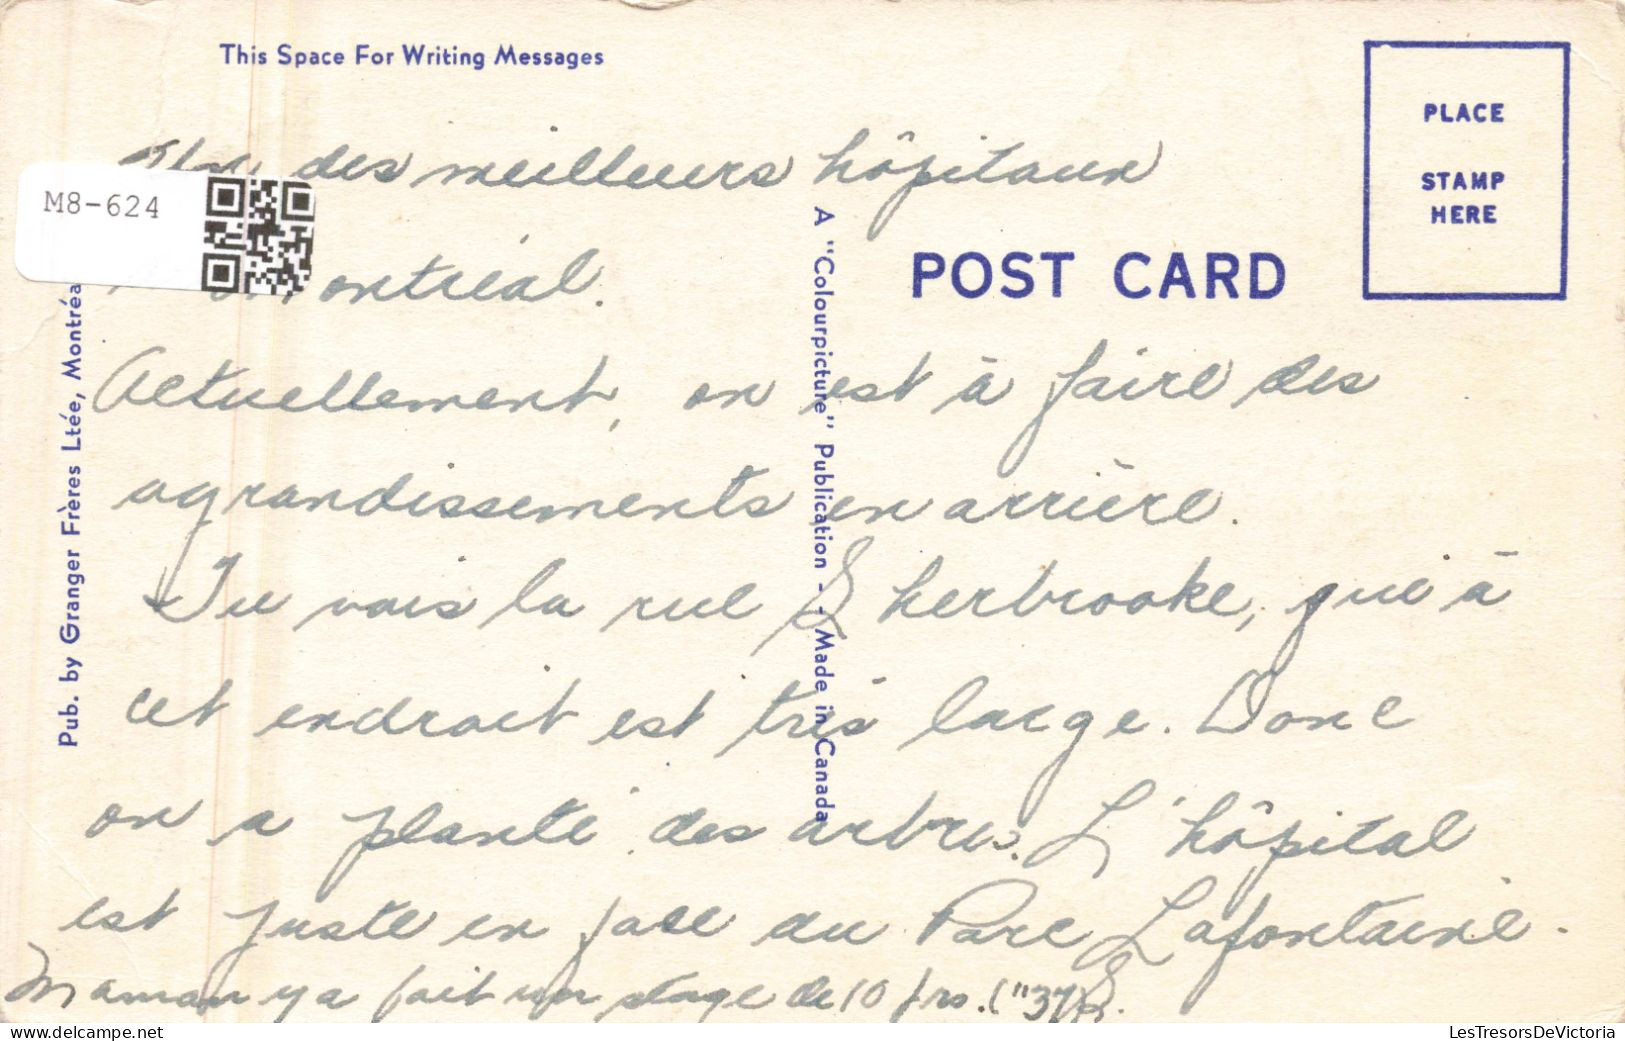 This Space For Writing Messages
PLACE
STAMP
HERE
POST CARD
M8-624
des meilleurs hôpitaux
ontréal.
Actuellement, on est à faire des
agrandissements en arrière.
Tu vois la rue Sherbrooke, que à
cet endroit est très large. Donc
on a planté des arbres. L'hôpital
est juste en face du Parc Lafontaine.
Maman y a fait un stage de 10 jrs.
Pub. by Granger Frères Ltée, Montréa
A "Colourpicture" Publication - - Made in Canada
www.delcampe.net
LesTresorsDeVictoria